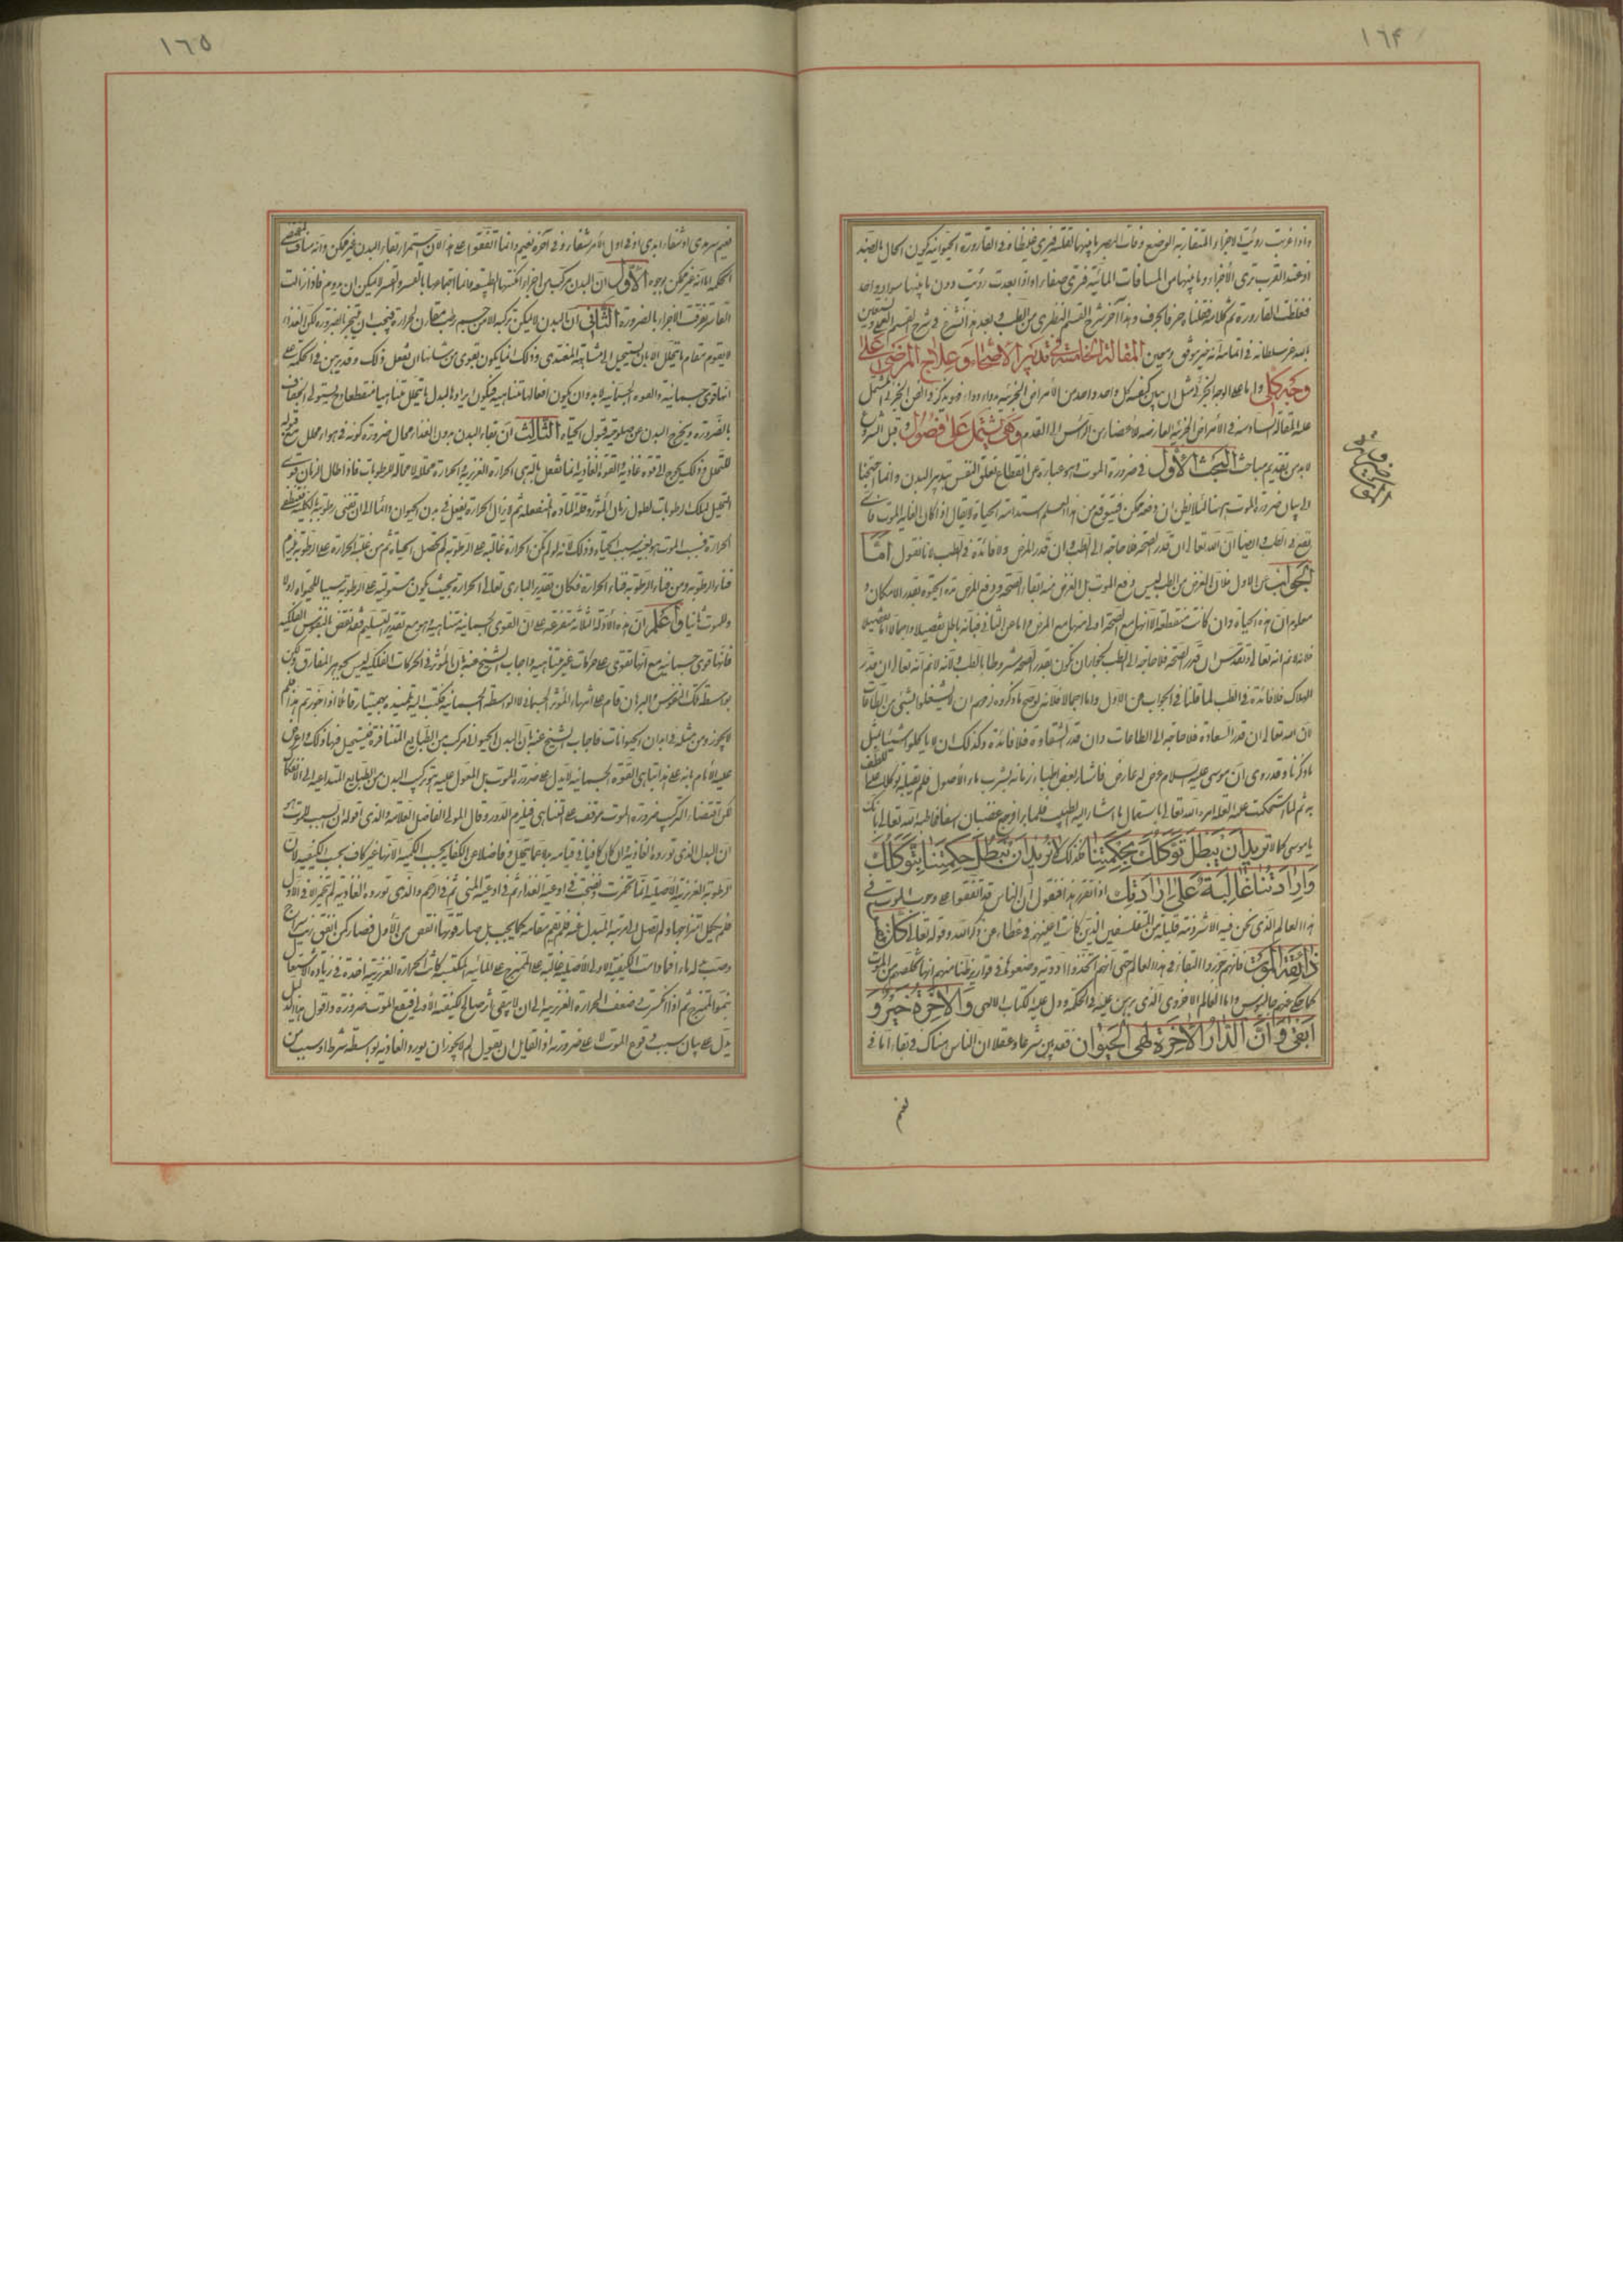 ١٦۴
واذا قربت رؤيت الاجزاء المتقاربة الوضع وفات البصر ما بينها لقلته فيرى غليظا وفي القارورة الحيوانية يكون الحال بالضد
اذ عند القرب ترى الاجزاء وما بينها من المسافات المائية فترى صغارا واذا بعدت رؤيت دون ما بينها سوادا واحدا
فغلظت القارورة تم كلامه فجعلناه حرفا بحرف وهذا آخر شرح القسم النظري من الطب وبعد هذا نشرع في شرح القسم العملي مستعينين
بالله عز سلطانه في اتمامه انه خير موفق ومعين المقالة الخامسة في تدبير الاصحاء وعلاج المرضى على
وجه كلي واما على الوجه الجزئي مثل ان يبين كيفية كل واحد واحد من الامراض الجزئية ودواء دواء فهو يذكر في الفن الجزئي المشتمل
عليه المقالة السادسة في الامراض الجزئية العارضة للاعضاء من الرأس الى القدم وهي تشتمل على فصول وقبل الشروع
لا بد من تقديم مباحث البحث الاول في ضرورة الموت وهو عبارة عن انقطاع تعلق النفس بتدبير البدن وانما احتجنا
الى بيان ضرورة الموت ههنا لئلا يظن ان دفعه ممكن فيتوقع من هذا العلم استدامة الحياة لا يقال اذا كان لغاية الموت فأي
نفع في الطب وايضا ان الله تعالى ان قدر الصحة فلا حاجة الى الطب وان قدر المرض ولا فائدة في الطب لانا نقول اما
الجواب عن الاول فلان الغرض من الطب ليس دفع الموت بل الغرض منه ابقاء الصحة ودفع المرض مدة الحيوة بقدر الامكان و
معلوم ان هذه الحياة وان كانت منقطعة لانها مع الصحة اولى منها مع المرض واما عن الثاني فبأنه باطل تفصيلا واجمالا اما تفصيلا
فلانه لا نم انه تعالى وتقدس ان قدر الصحة فلا حاجة الى الطب لجواز ان يكون تقدير الصحة مشروطا بالطب ولانه لا نم انه تعالى ان قدر
الهلاك فلا فائدة في الطب لما قلنا في الجواب عن الاول واما اجمالا فلانه لو صح ما ذكروه لزمهم ان لا يشتغلوا بشيء من الطاعات
لان الله تعالى ان قدر السعادة فلا حاجة الى الطاعات وان قدر الشقاوة فلا فائدة وكذلك ان لا ياكلوا شيئا بمثل
ما ذكرنا وقد روى ان موسى عليه السلام عرض له عارض فاشار بعض اطباء زمانه بشرب ماء الاصول فلم يقبله توكلا على لطف
به ثم لما استحكمت عليه العلة امره الله تعالى باستعمال ما اشار اليه الطبيب فلما برا فرجع غضبان اسفا فخاطبه الله تعالى بانك
يا موسى كما لا تريد ان يبطل توكلك بحكمتنا فكذلك لا نريد ان تبطل حكمتنا بتوكلك
وارادتنا غالبة على ارادتك اذا تقرر هذا فنقول ان الناس قد اتفقوا على وجوب الموت في
هذا العالم الذي نحن فيه الا شرذمة قليلة من المتفلسفين الذين كانت اعينهم في غطاء عن ذكر الله وقوله تعالى كل نفس
ذائقة الموت فانهم جوزوا البقاء في هذا العالم حتى انهم اتخذوا ادوية وضعوها في قوارير ظنا منهم انها تخلصهم من الموت
كما حكي عنهم جالينوس واما العالم الاخروي الذي برهن عليه في الحكمة ودل عليه الكتاب الالهي والاخرة خير و
ابقى وان الدار الاخرة لهي الحيوان فقد بين شرعا وعقلا ان الناس هناك في بقاء اما في
نعيم
١٦٥
نعيم سرمدي او شقاء ابدي او في اول الامر شقاء وفي آخره نعيم وانما اتفقوا على هذا لان استمرار بقاء البدن غير ممكن وانه مناف لمقتضى
الحكمة اما انه غير ممكن لوجوه الاول ان البدن مركب من اجزاء امكنتها الطبيعية فانما اجتماعها بالقسر والقسر لا يمكن ان يدوم فاذا زالت
القاسر تفرقت الاجزاء بالضرورة الثاني ان البدن لا يمكن تركيبه الا من جسم رطب مقارن لحرارة فيجب ان يتبخر بالضرورة لكن الغذاء
لا يقوم مقام ما يتحلل الا بان يستحيل الى مشابهة المغتذي وذلك انما يكون بقوى من شانها ان تفعل ذلك وقد برهن في الحكمة على
انها قوى جسمانية والقوة الجسمانية لا بد وان يكون افعالها متناهية فيكون ايراد البدل لما يتحلل متناهيا منقطعا ويستولي الجفاف
بالضرورة ويخرج البدن عن صلوحية قبول الحياة الثالث ان بقاء البدن بدون الغذاء محال ضرورة كونه في هواء محلل مع قبوله
للتحلل وذلك يحوج الى قوة غاذية والقوة الغاذية انما تفعل بالتهى الحرارة الغريزية والحرارة محللة لا محالة للرطوبات فاذا طال الزمان قوى
التحليل لتلك الرطوبات لطول زمان المؤثر وقلة المادة المنفعلة ثم لا يزال الحرارة تفعل في بدن الحيوان دائما الى ان تفنى رطوبته بالكلية فتنطفئ
الحرارة فسبب الموت هو بعينه سبب الحياة وذلك لانه لو لم تكن الحرارة غالبة على الرطوبة لم تحصل الحياة ثم من غلبة الحرارة على الرطوبة يلزم
فناء الرطوبة ومن فناء الرطوبة فناء الحرارة فكان تقدير الباري تعالى الحرارة بحيث يكون مستولية على الرطوبة سببا للحيوة اولا
وللموت ثانيا واعلم ان هذه الادلة الثلاثة متفرعة على ان القوى الجسمانية متناهية وهو مع تقدير التسليم فقد نقض بالنفوس الفلكية
فانها قوى جسمانية مع انها تقوى على حركات غير متناهية واجاب الشيخ عنه بان المؤثر في الحركات الفلكية ليس جوهر المفارق ولكن
بواسطة تلك النفوس والبرهان قام على انتهاء المؤثر الجسماني لا الواسطة الجسمانية فكتب اليه تلميذه بهمنيار قائلا اذا جوزتم هذا فلم
لا يجوز ومن مثله في ابدان الحيوانات فاجاب الشيخ عنه بان البدن الحيواني مركب من الطبايع المتنافرة فيستحيل فيها ذلك واعترض
عليه الامام بانه على هذا تناهي القوة الجسمانية لا يدل على ضرورة الموت بل المعول عليه هو تركب البدن من الطبايع المتداعية الى الانفكاك
لكن اقتضاء التركيب ضرورة الموت موقف على التناهي فيلزم الدور وقال المولى الفاضل العلامة والذي اقوله ان سبب الموت هو
ان البدل الذي تورده الغاذية وان كان كافيا في قيامه بدل ما يتحلل وفاضلا عن الكفاية بحسب الكمية الا انها غير كاف بحسب الكيفية لان
الرطوبة الغريزية الاصلية انما تخمرت ونضجت في اوعية الغذاء ثم في اوعية المني ثم في الرحم والذي تورده الغاذية لم يتخمر الا في الاول
فلم يكمل امتزاجها ولم تصل الى مرتبة المبدل عنه فلم يقم مقامه كما يجب بل صار قوتها انقص من الاول فصار كمن انفق زيت سراج
وصب بدله ماء فما دامت الكيفية الاولى الاصلية غالبة على الممتزج على المائية المكتسبة كانت الحرارة الغريزية آخذة في زيادة الاشتعال
ينمو الممتزج ثم اذا انكسرت ضعف الحرارة الغريزية الى ان لا يبقى اثر صالح لكيفيته الاولى فيقع الموت ضرورة واقول هذا الدليل
يدل على بيان سبب وقوع الموت لا على ضرورته اذ لقايل ان يقول لم لا يجوز ان يورد الغاذية بواسطة شرط او سبب من